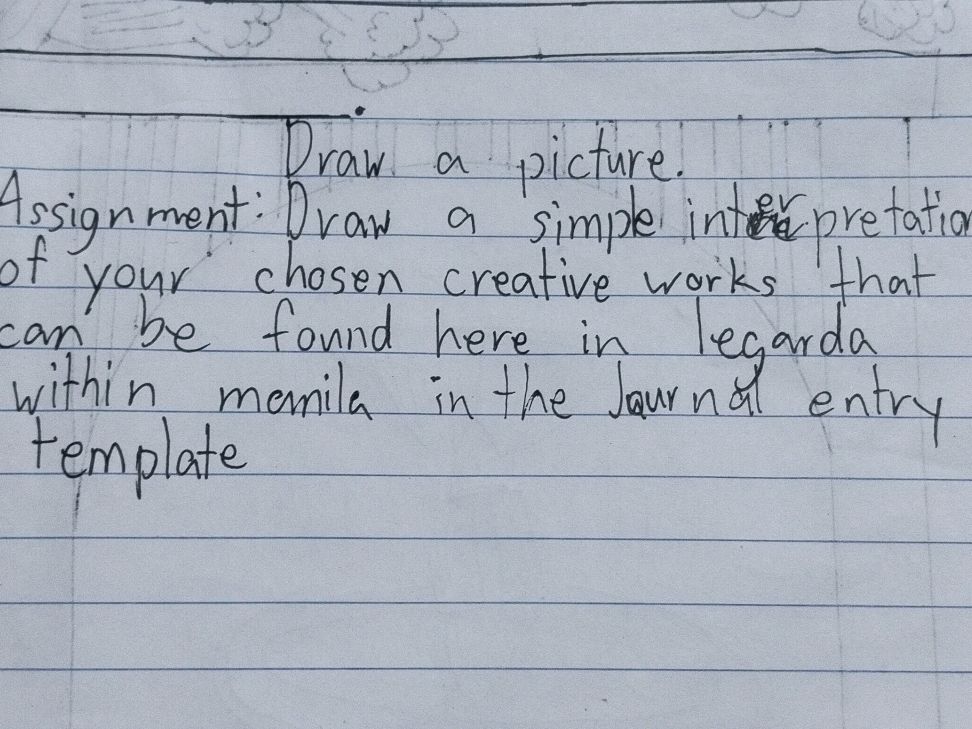 Draw a picture.
Assignment: Draw a simple interpretation
of your chosen creative works that
can be found here in legarda
within manila in the Journal entry
template